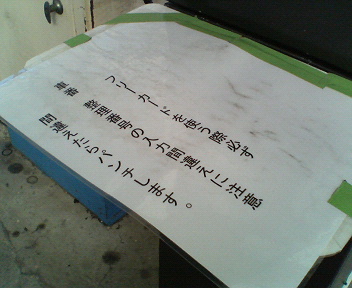 フリーカードを使う際必ず
車番 整理番号の入力間違えに注意
間違えたらパンチします。